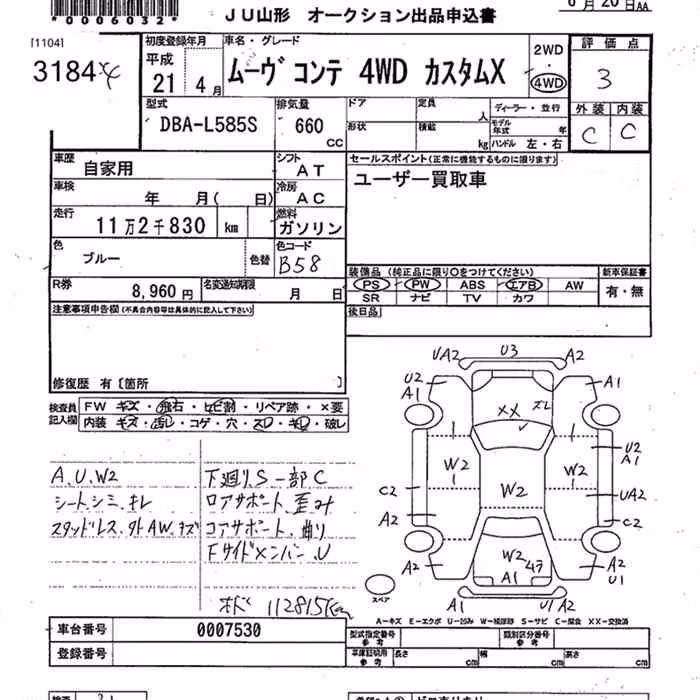 *0006032*
JU山形 オークション出品申込書
6月20日AA
[1104]
3184
初度登録年月
平成
21 4月
車名・グレード
ムーヴ コンテ 4WD カスタムX
2WD
4WD
評価点
3
外装 内装
C C
型式
DBA-L585S
排気量
660 CC
ドア
定員
人
ディーラー・並行
形状
積載
kg
モデル年式
年
ハンドル 左・右
車歴
自家用
シフト
AT
セールスポイント(正常に機能するものに限ります)
ユーザー買取車
車検
年 月( 日)
冷房
AC
走行
11万2千830 km
燃料
ガソリン
色
ブルー
色替
色コード
B58
R券
8,960円
名変通知期限
月 日
装備品(純正品に限り○をつけてください)
PS・PW・ABS・エアB・AW
SR ナビ TV カワ
新車保証書
有・無
後日品
注意事項申告欄(不具合内容等は具体的に記入して下さい)
修復歴 有〔箇所 〕
検査員記入欄
FW キズ・飛石・ヒビ割・リペア跡・×要
内装 キズ・汚レ・コゲ・穴・スレ・キレ・破レ
A.U.W2
シートシミ.キレ
スタッドレス.外AW.キズ
下廻りS一部C
ロアサポート.歪み
コアサポート.曲り
Fサイドメンバー.U
オド 112815Km
UA2 U3 A2
U2 A1 A1
XX ズレ
W2 W2 W2
U2 A1
C2 UA2
A2 C2
W2 ムラ
A2 A1 A2 U1
A1 U1 A2
スペア
A-キズ E-エクボ U-凹み W-補修跡 S-サビ C-腐食 XX-交換済
車台番号 0007530
登録番号
型式指定番号
参考
類別区分番号
参考
車庫証明用
参考
長さ cm
幅 cm
高さ cm